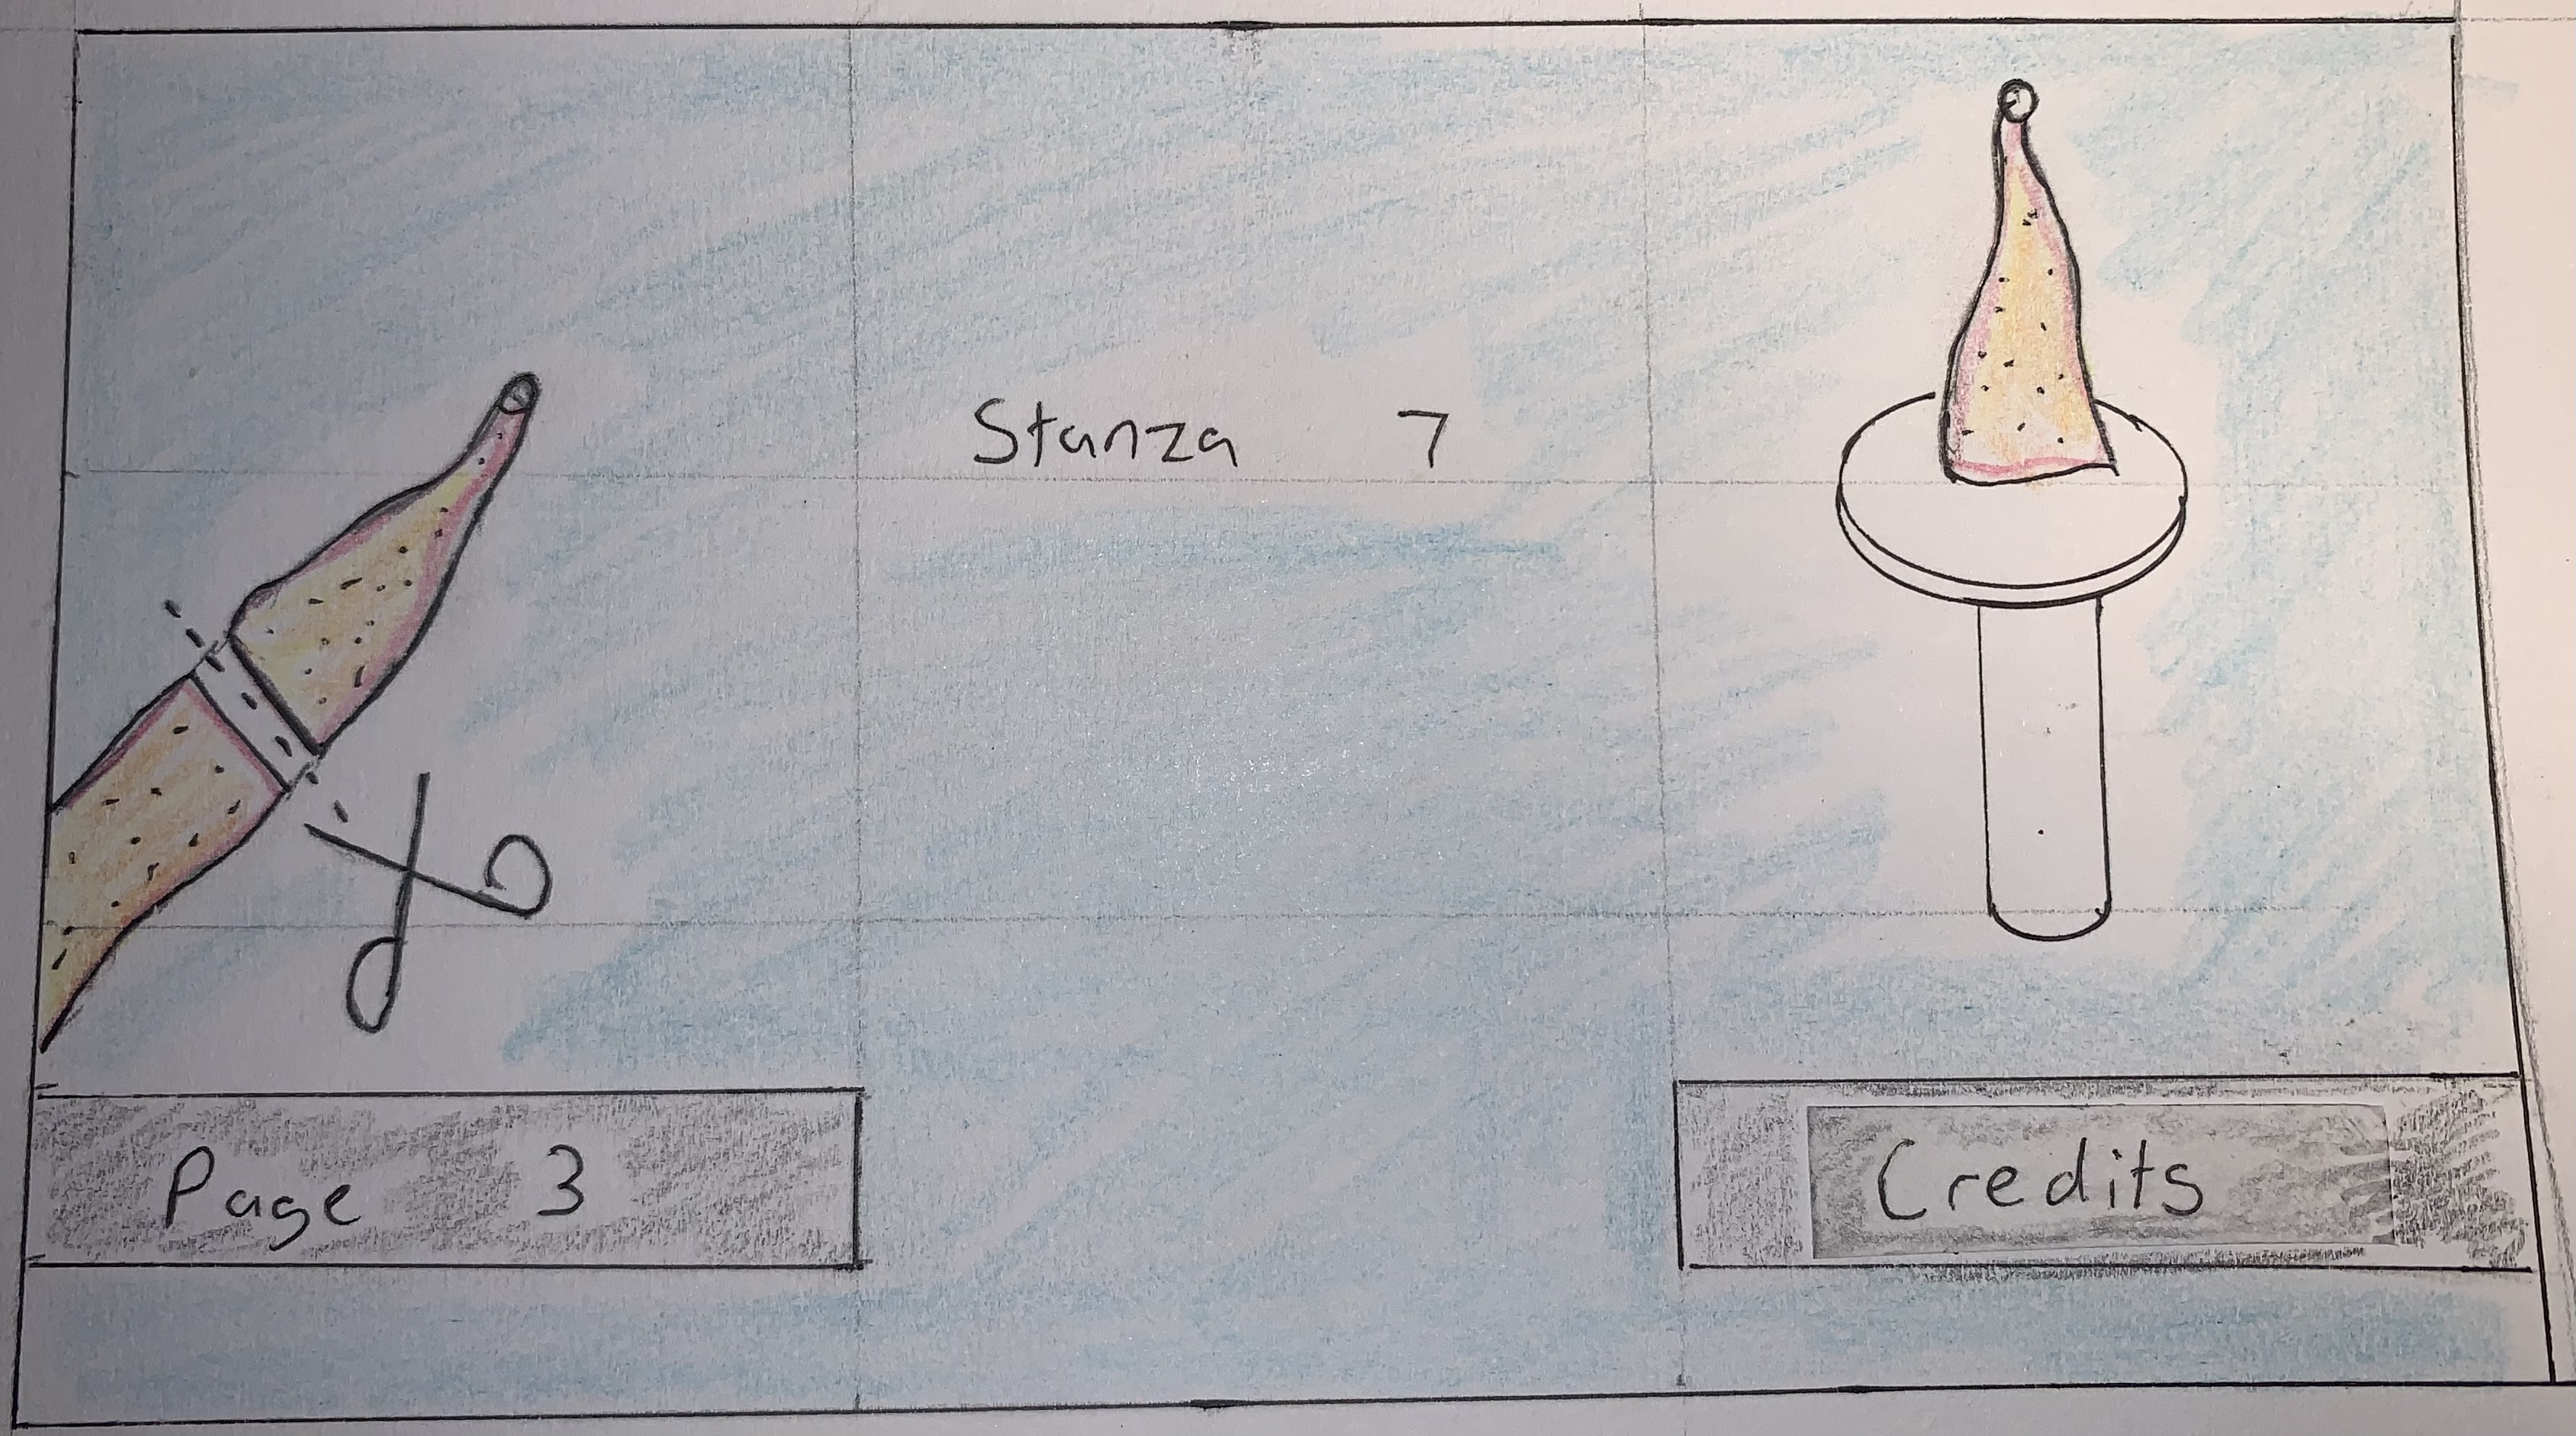 Stanza 7
Page 3
Credits